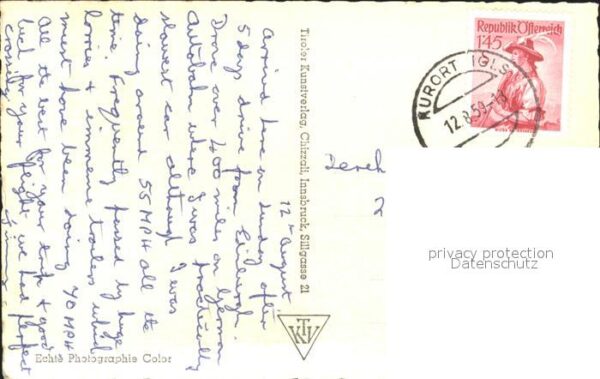 Republik Österreich
1'45
KURORT IGLS
12.8.59
Tiroler Kunstverlag, Chizzali, Innsbruck, Sillgasse 21
Derek
2
privacy protection
Datenschutz
TKV
Echte Photographie Color
12th August
Arrived here on Sunday after
5 days drive from Edinburgh.
Drove over 400 miles on German
Autobahn where I was practically
slowest car although I was
doing around 55 MPH all the
time. Frequently passed by huge
lorries & immense trailers which
must have been doing 70 MPH
All the best for your trip & good
luck for your flight. We had perfect
crossing